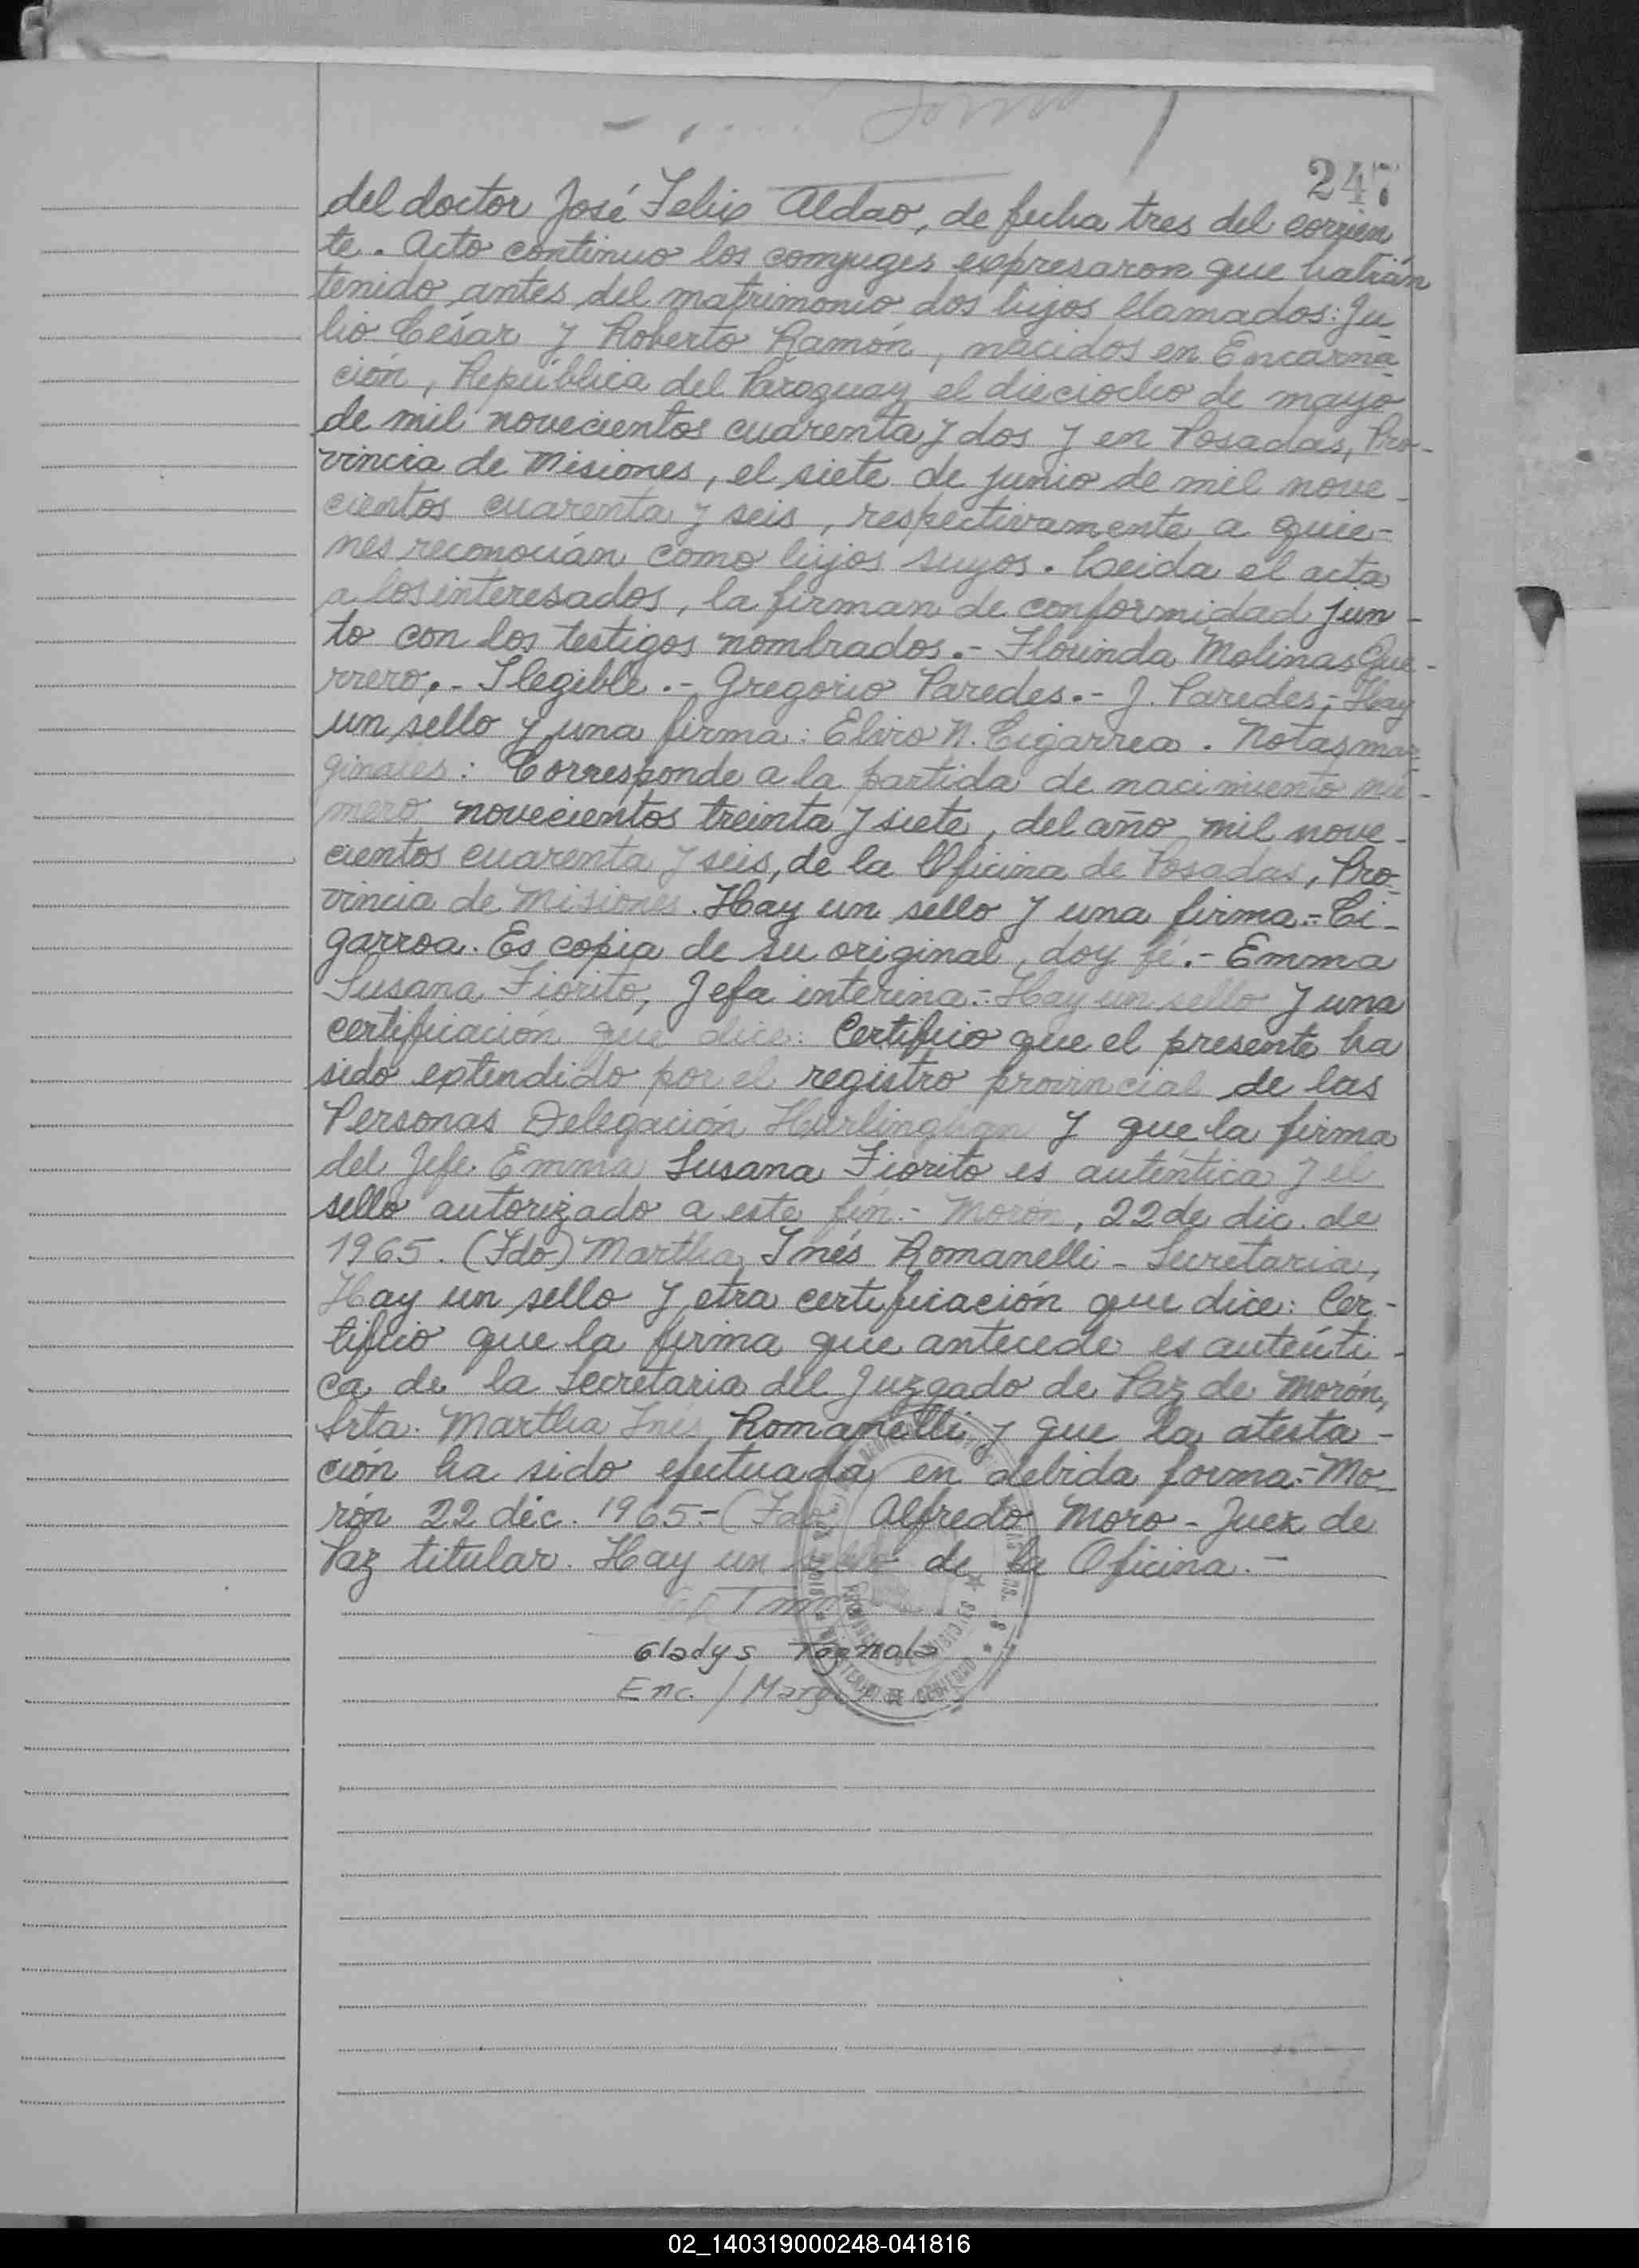 247
del doctor José Felix Aldao, de fecha tres del corrien
te. Acto continuo los conyuges expresaron que habián
tenido antes del matrimonio dos hijos llamados: Ju_
lio César y Roberto Ramón, nacidos en Encarna_
ción, República del Paraguay el dieciocho de mayo
de mil novecientos cuarenta y dos y en Posadas, Pro-
vincia de Misiones, el siete de junio de mil nove-
cientos cuarenta y seis, respectivamente a quie-
nes reconocián como hijos suyos. Leida el acta
a los interesados, la firman de conformidad jun-
to con los testigos nombrados.- Florinda Molinas Gue-
rrero.- Ilegible.- Gregorio Paredes.- J. Paredes,- Hay
un sello y una firma: Elviro N. Cigarrea. Notas mar-
ginales: Corresponde a la partida de nacimiento nú-
mero novecientos treinta y siete, del año mil nove-
cientos cuarenta y seis, de la Oficina de Posadas, Pro-
vincia de Misiones. Hay un sello y una firma.- Ci-
garroa. Es copia de su original, doy fé.- Emma
Susana Fiorito, Jefa interina.- Hay un sello y una
certificación que dice: Certifico que el presente ha
sido extendido por el registro provincial de las
Personas Delegación Hurlinghan y que la firma
del Jefe Emma Susana Fiorito es auténtica y el
sello autorizado a este fin.- Morón, 22 de dic. de
1965. (Fdo) Martha Inés Romanelli - Secretaria,
Hay un sello y otra certificación que dice: Cer-
tifico que la firma que antecede es auténti-
ca de la Secretaria del Juzgado de Paz de Morón,
Srta. Martha Inés Romanelli y que la atesta-
ción ha sido efectuada en debida forma.- Mo_
rón 22 dic. 1965.- (Fdo) Alfredo Moro - Juez de
Paz titular. Hay un sello de la Oficina.-
Gladys
Enc. /
02_140319000248-041816